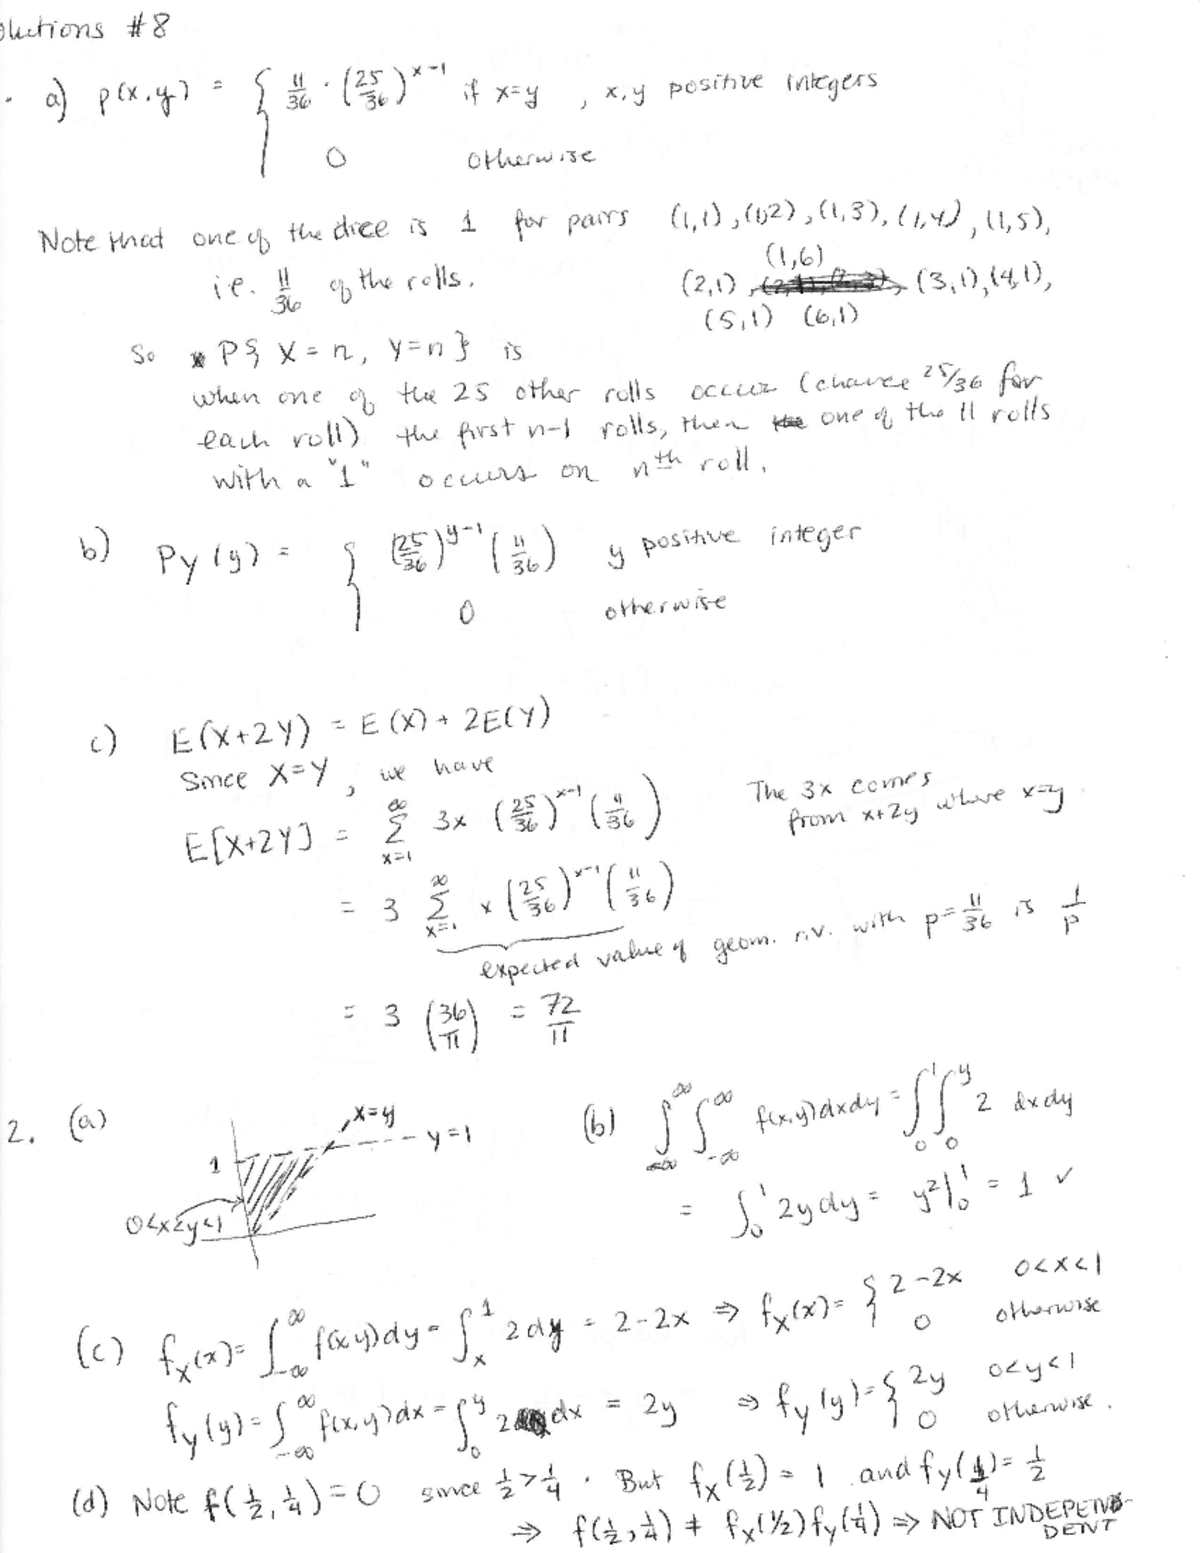 olutions #8
a) p(x,y) = { 11/36 · (25/36)^(x-1) if x=y , x,y positive integers
0 otherwise
Note that one of the dice is 1 for pairs (1,1), (1,2), (1,3), (1,4), (1,5),
(1,6)
i.e. 11/36 of the rolls. (2,1), (3,1), (4,1),
(5,1) (6,1)
So P{ X = n, Y = n } is
when one of the 25 other rolls occur (chance 25/36 for
each roll) the first n-1 rolls, then one of the 11 rolls
with a "1" occurs on nth roll.
b) P_Y(y) = { (25/36)^(y-1) (11/36) y positive integer
0 otherwise
c) E(X+2Y) = E(X) + 2E(Y)
Since X=Y, we have
E[X+2Y] = ∞Σx=1 3x (25/36)^(x-1) (11/36) The 3x comes from x+2y where x=y.
= 3 ∞Σx=1 x (25/36)^(x-1) (11/36)
expected value of geom. r.v. with p=11/36 is 1/p
= 3 (36/11) = 72/11
2. (a) x=y
1 y=1
0<x<y<1
(b) ∫_{-∞}^{∞} ∫_{-∞}^{∞} f(x,y)dxdy = ∫_0^1 ∫_0^y 2 dxdy
= ∫_0^1 2y dy = y²|_0^1 = 1 ✓
(c) f_X(x) = ∫_{-∞}^{∞} f(x,y)dy = ∫_x^1 2dy = 2-2x ⇒ f_X(x) = { 2-2x 0<x<1
0 otherwise
f_Y(y) = ∫_{-∞}^{∞} f(x,y)dx = ∫_0^y 2 dx = 2y ⇒ f_Y(y) = { 2y 0<y<1
0 otherwise.
(d) Note f(1/2, 1/4) = 0 since 1/2 > 1/4. But f_X(1/2) = 1 and f_Y(1/4) = 1/2
⇒ f(1/2, 1/4) ≠ f_X(1/2) f_Y(1/4) ⇒ NOT INDEPEND-
DENT